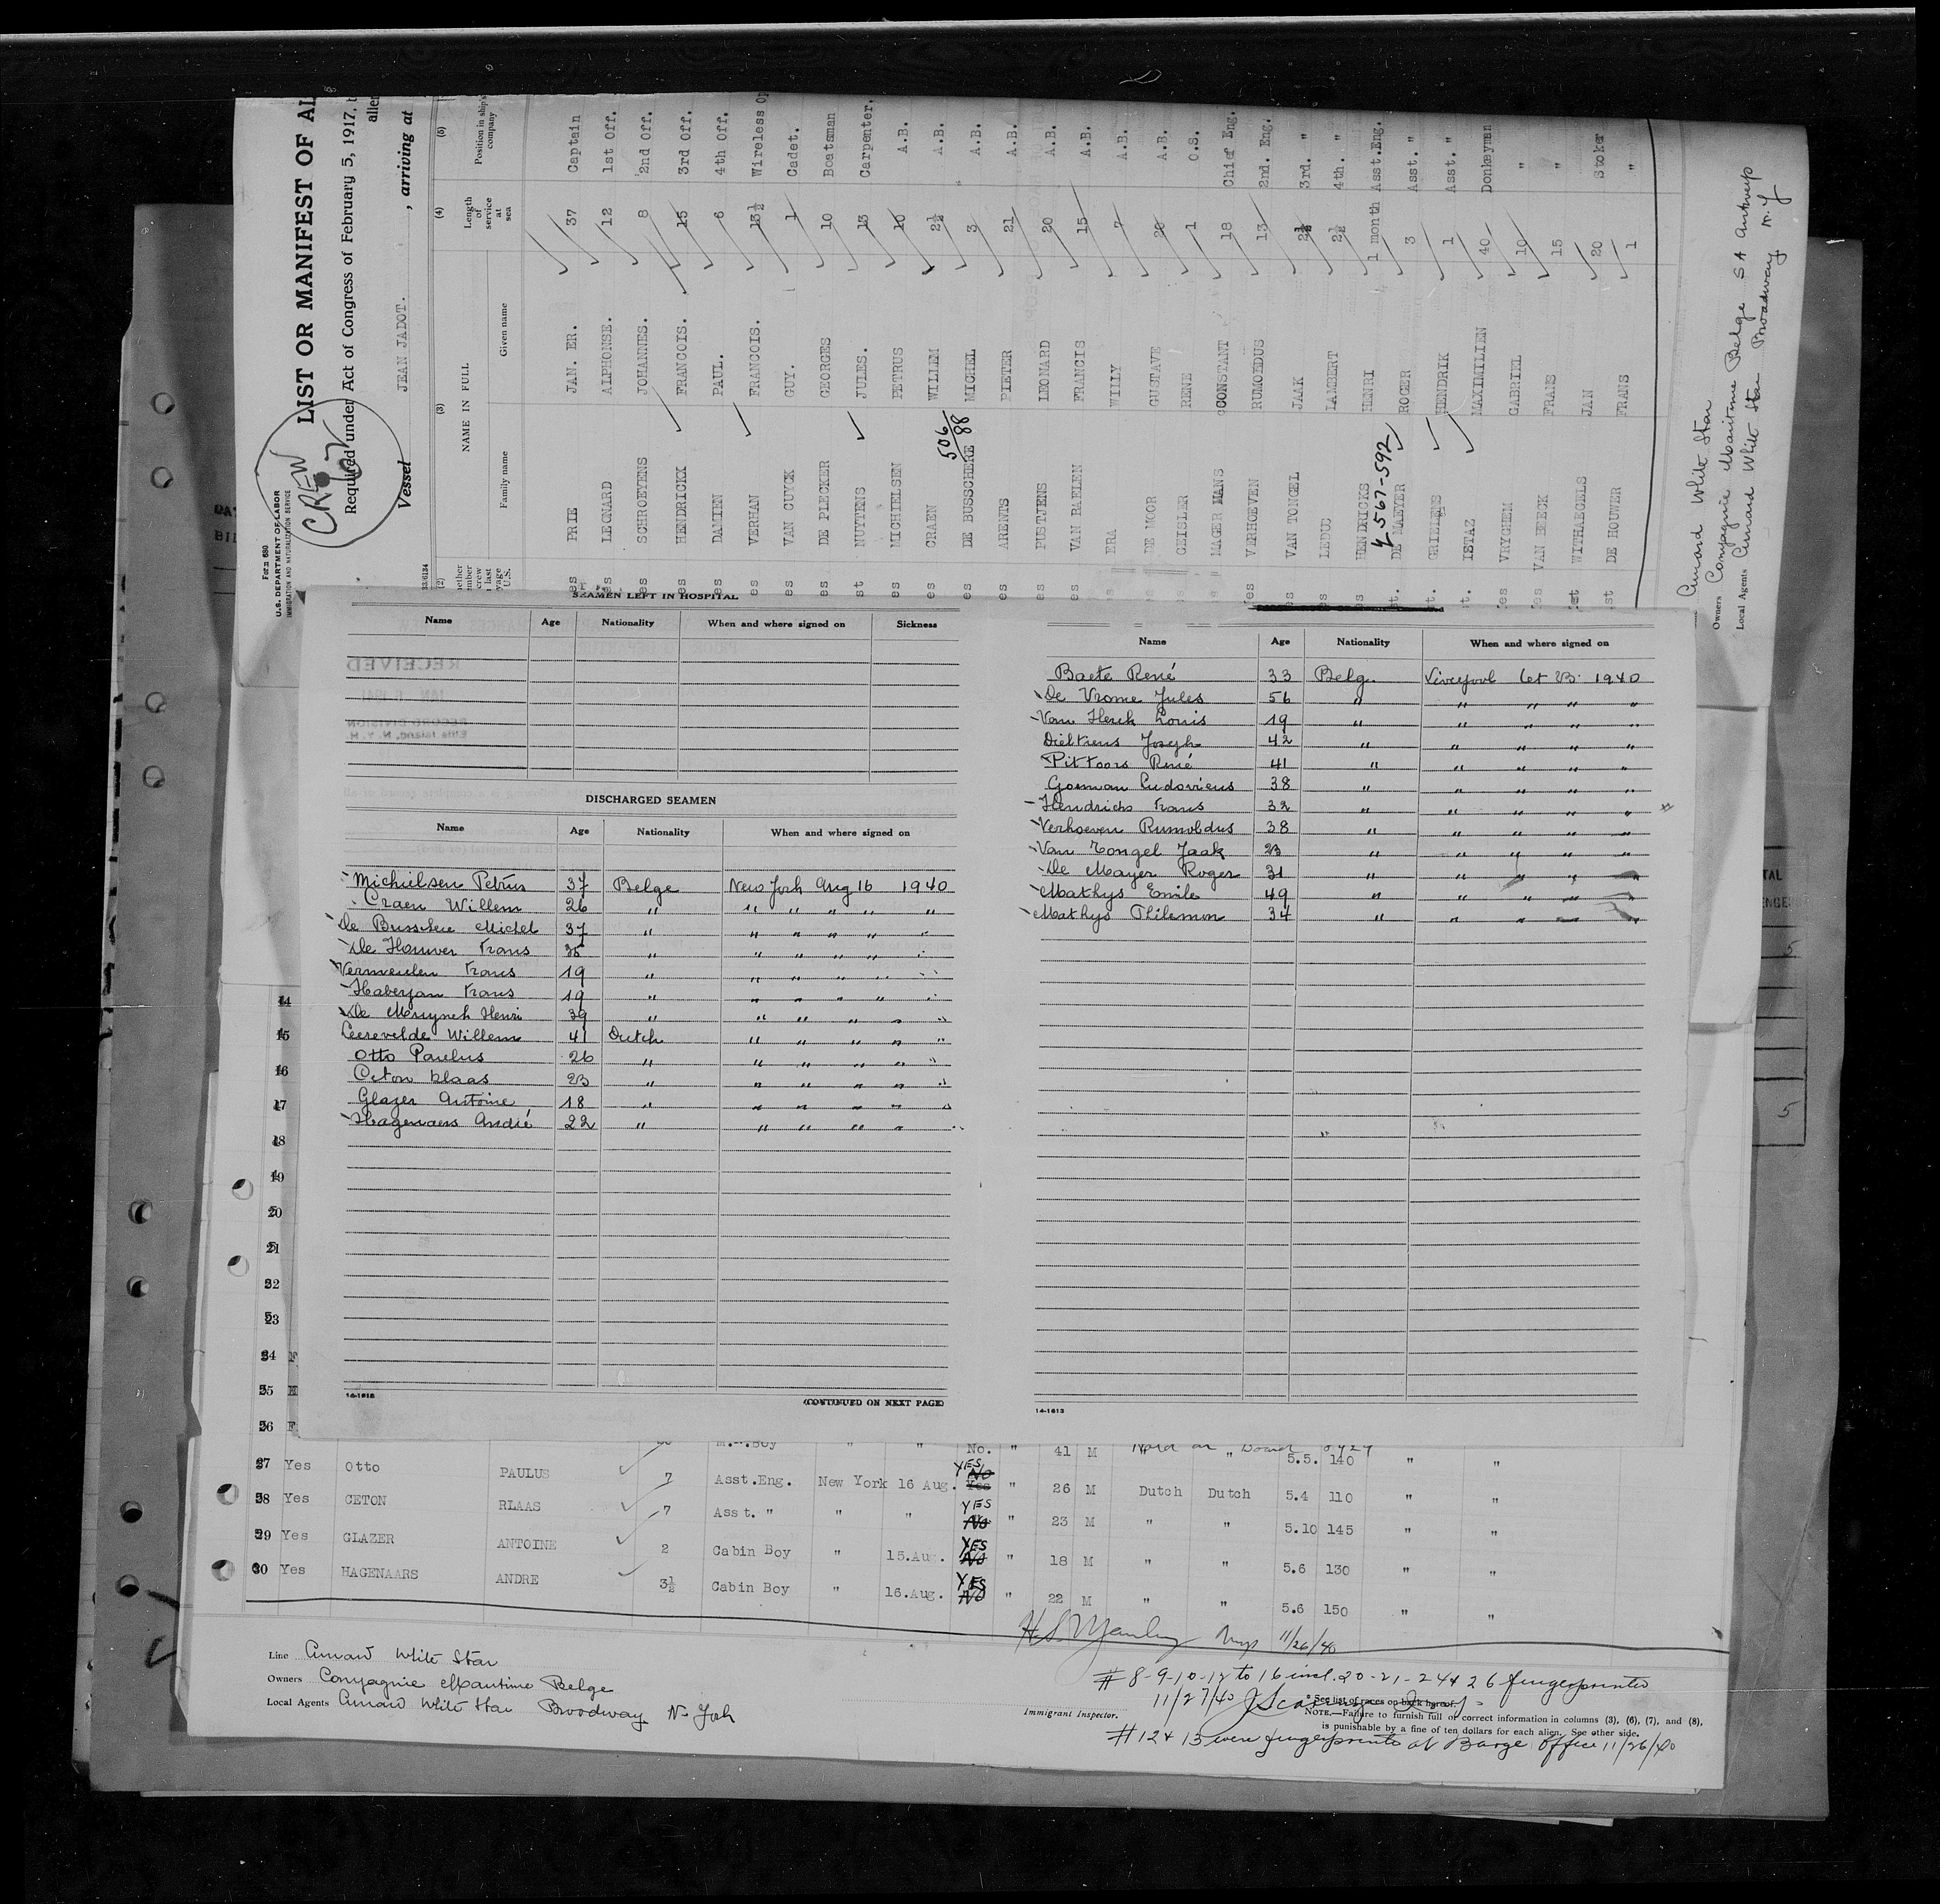 Form 680
U.S. DEPARTMENT OF LABOR
IMMIGRATION AND NATURALIZATION SERVICE
CREW
LIST OR MANIFEST OF AL
Required under Act of Congress of February 5, 1917, t
alien
Vessel JEAN JADOT. , arriving at
(2) (3) (4) (5)
NAME IN FULL
Family name Given name
Length of service at sea
Position in ship's company
PRIE JAN. ER. 37 Captain
LEONARD ALPHONSE. 12 1st Off.
SCHROEYENS JOHANNES. 8 2nd Off.
HENDRICKX FRANCOIS. 15 3rd Off.
DAMIEN PAUL. 6 4th Off.
VERHAN FRANCOIS. 13½ Wireless Op
VAN CUYCK GUY. 1 Cadet.
DE PLECKER GEORGES 10 Boatsman
NUYTENS JULES. 13 Carpenter.
MICHIELSEN PETRUS 10 A.B.
CRAEN WILLEM 2½ A.B.
506/88
DE BUSSCHERE MICHEL 3 A.B.
ARENTS PIETER 21 A.B.
PUSTJENS LEONARD 20 A.B.
VAN RAELEN FRANCIS 15 A.B.
ERA WILLY 7 A.B.
DE MOOR GUSTAVE 20 A.B.
GEISLER RENE 1 O.S.
MAGER MANS CONSTANT 18 Chief Eng.
VERHOEVEN RUMOEDUS 13 2nd. Eng.
VAN TONGEL JAAK 2½ 3rd. "
LEDUC LAMBERT 2½ 4th. "
HENDRICKS HENRI 1 month Asst.Eng.
4-567-592
DE MAEYER ROGER 3 Asst. "
GRIELENS HENDRIK 1 Asst. "
ISTAZ MAXIMILIEN 40 Donkeyman
VRYGHEM GABRIEL 10 "
VAN BEECK FRANS 15 "
WITHAEGELS JAN 20 Stoker
DE HOUWER FRANS 1 "
Cunard White Star
Owners Compagnie Maritime Belge SA Antwerp
Local Agents Cunard White Star Broadway N.Y
SEAMEN LEFT IN HOSPITAL
Name Age Nationality When and where signed on Sickness
DISCHARGED SEAMEN
Name Age Nationality When and where signed on
Michielsen Petrus 37 Belge New York Aug 16 1940
Craen Willem 26 " " " " " "
De Busschere Michel 37 " " " " " "
De Houwer Frans 35 " " " " " "
Vermeulen Frans 19 " " " " " "
Haberjan Frans 19 " " " " " "
De Meuynck Henri 39 " " " " " "
Leerevelde Willem 41 Dutch " " " " "
Otto Paulus 26 " " " " " "
Ceton Klaas 23 " " " " " "
Glazer Antoine 18 " " " " " "
Hagenaers André 22 " " " " " "
14-1613
(CONTINUED ON NEXT PAGE)
Name Age Nationality When and where signed on
Baete René 33 Belge Liverpool Oct 23 1940
De Vrome Jules 56 " " " " "
Van Herck Louis 19 " " " " "
Dieltiens Joseph 42 " " " " "
Pittoors René 41 " " " " "
Goeman Ludovicus 38 " " " " "
Hendrichs Frans 32 " " " " "
Verhoeven Rumoldus 38 " " " " "
Van Tongel Jaak 23 " " " " "
De Mayer Roger 31 " " " " "
Mathys Emile 49 " " " " "
Mathys Philemon 34 " " " " "
14-1613
14
15
16
17
18
19
20
21
22
23
24 F
25 H
26 F
M.M.Boy " " No. " 41 M 5.5. 140 " "
27 Yes Otto PAULUS 7 Asst.Eng. New York 16 Aug. YES " 26 M Dutch Dutch 5.4 110 " "
28 Yes CETON RLAAS 7 Asst. " " " YES No " 23 M " " 5.10 145 " "
29 Yes GLAZER ANTOINE 2 Cabin Boy " 15.Aug. YES No " 18 M " " 5.6 130 " "
30 Yes HAGENAARS ANDRE 3½ Cabin Boy " 16.Aug. YES No " 22 M " " 5.6 150 " "
11/26/40
Line Cunard White Star
Owners Compagnie Maritime Belge
Local Agents Cunard White Star Broadway N. York
# 8-9-10-12 to 16 incl. 20-21-24 & 26 fingerprinted
11/27/40
Immigrant Inspector.
* See list of races on back hereof.
NOTE.—Failure to furnish full or correct information in columns (3), (6), (7), and (8),
is punishable by a fine of ten dollars for each alien. See other side.
# 12 & 15 were fingerprinted at Barge Office 11/26/40